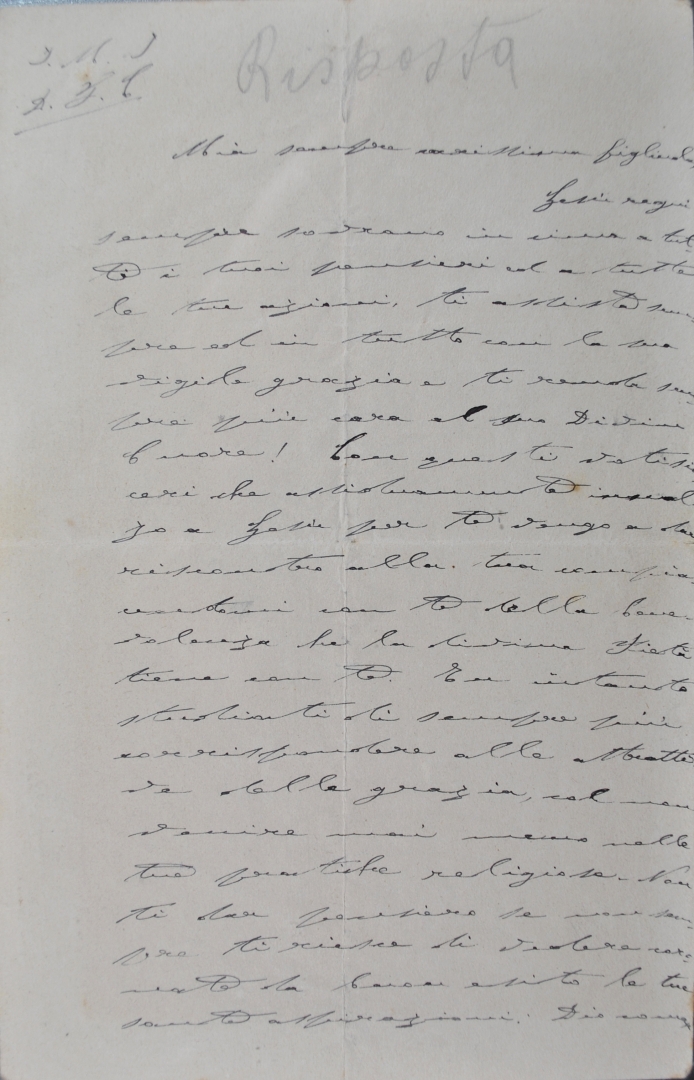 J. M. J
Risposta
Mia sempre carissima figliuola,
Gesù regni
sempre sovrano in cima a tut-
ti i tuoi pensieri ed a tutte
le tue azioni, ti assista sem
pre ed in tutto con la sua
vigile grazia e ti renda sem
pre più cara al suo Divin
Cuore! Con questi voti sin
ceri che assiduamente innal
zo a Gesù per te vengo a dar
riscontro alla tua compia
cendomi con te della bene-
volenza che la divina Pietà
tiene con te. Tu intanto
studiati di sempre più
corrispondere alle attratti
ve della grazia, col non
venire mai meno nelle
tue pratiche religiose. Non
ti dar pensiero se non sem-
pre ti riesce di vedere coro-
nate da buon esito le tue
sante aspirazioni. Dio